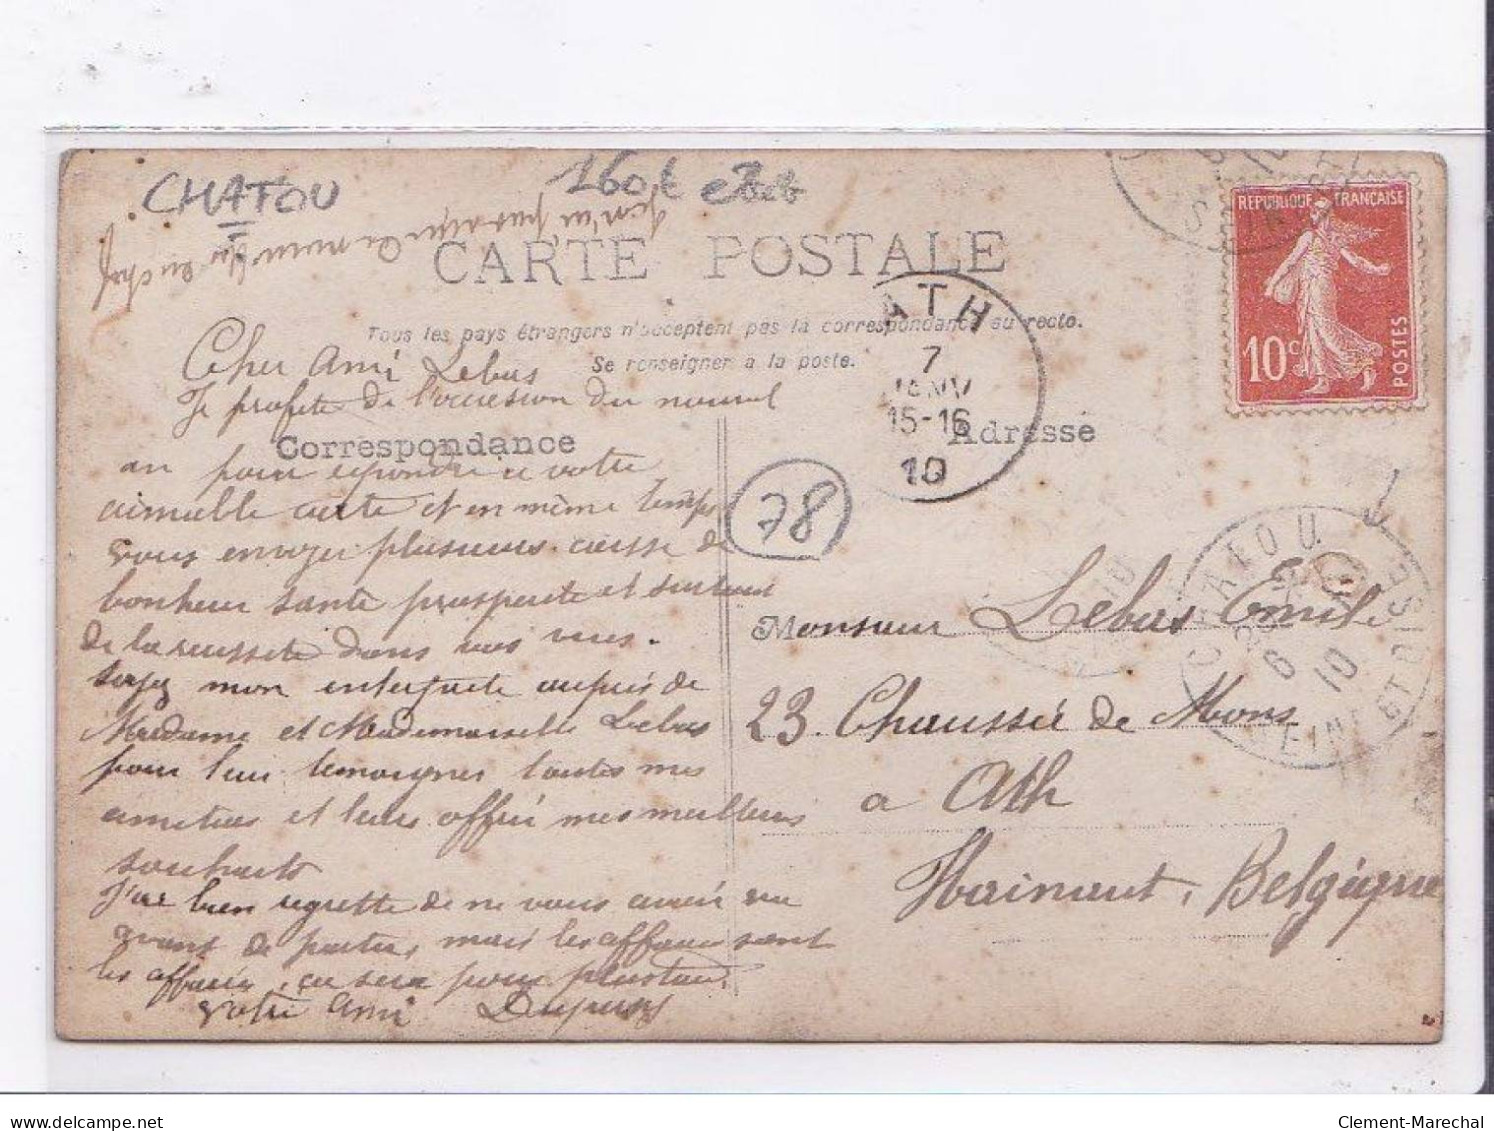 CHATOU
CARTE POSTALE
Tous les pays étrangers n'acceptent pas la correspondance au recto.
Se renseigner a la poste.
Correspondance
Adresse
REPUBLIQUE FRANÇAISE
10c
POSTES
ATH
7
JANV
15-16
10
CHATOU
6
10
SEINE ET OISE
78
Cher Ami Lebus
Je profite de l'occasion du nouvel
an pour repondre a votre
aimable carte et en même temps
vous envoyer plusieurs caisse de
bonheur santé prosperité et surtout
de la reussite dans vos vues.
Soyez mon interprete auprès de
Madame et Mademoiselle Lebus
pour leur temoigner toutes mes
amities et leurs offrir mes meilleurs
souhaits
J'ai bien regretté de ne vous avoir vu
avant de partir, mais les affaires sont
les affaires, ça sera pour plus tard.
Votre Ami Dupuis
Monsieur Lebus Emile
23. Chaussée de Mons
a Ath
Hainaut, Belgique
Clement-Marechal